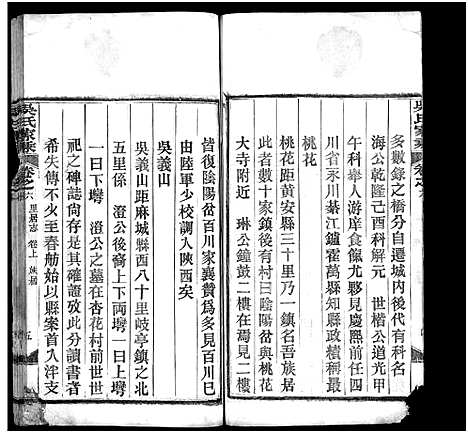 多數錄之橋分自遷城內後代有科名
海公乾隆己酉科解元 世楷公道光甲
午科舉人游庠食餼尤夥慶熙前任四
川省永川綦江鑪霍萬縣知縣政績大著
桃花
桃花距黃安縣三十里乃一鎮名吾族居
此者數十家鎮後有村曰陰陽岔與桃花
大寺附近 琳公鐘鼓二樓在焉見二樓
皆復陰陽岔百川家襄贊為多見百川已
由陸軍少校調入陝西矣
吳義山
吳義山距麻城縣西八十里岐亭鎮之北
五里係 澄公後裔上下兩塆一曰上塆
一曰下塆 澄公之墓在杏花村前世世
祀之碑誌尚存是其確證攷此分讀書者
希失傳不火至春舫始以縣案首入泮支
吳氏家乘 卷之六 里居志 卷上 族居 五
吳氏家乘